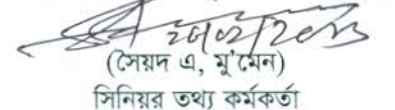 (সৈয়দ এ, মু'মেন)
সিনিয়র তথ্য কর্মকর্তা